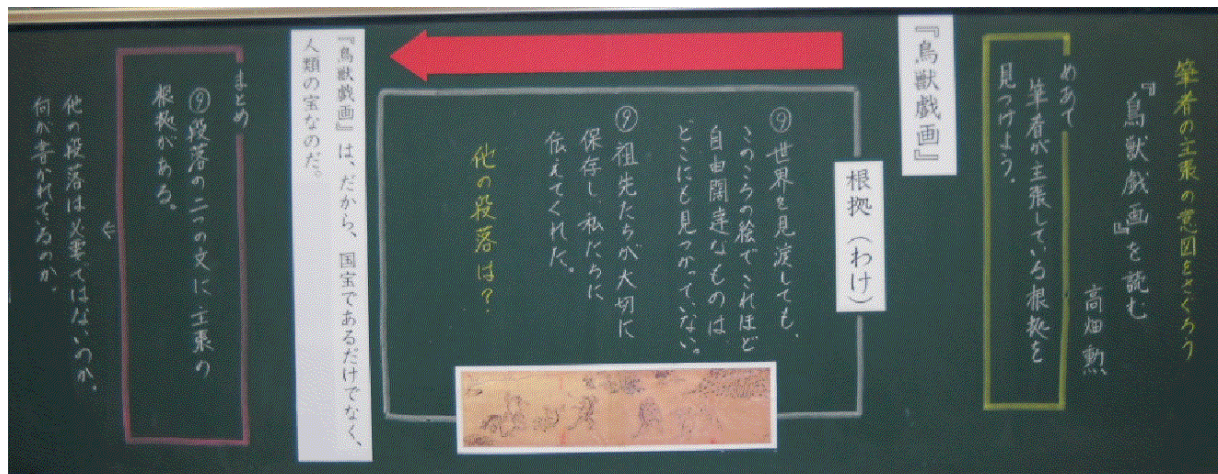 筆者の主張の意図をさぐろう
『鳥獣戯画』を読む
高畑勲
めあて
筆者が主張している根拠を
見つけよう。
『鳥獣戯画』
根拠（わけ）
⑨世界を見渡しても、
このころの絵でこれほど
自由闊達なものは、
どこにも見つかっていない。
⑨祖先たちが大切に
保存し、私たちに
伝えてくれた。
他の段落は？
『鳥獣戯画』は、だから、国宝であるだけでなく、
人類の宝なのだ。
まとめ
⑨段落の二つの文に主張の
根拠がある。
他の段落は必要ではないのか。
何が書かれているのか。